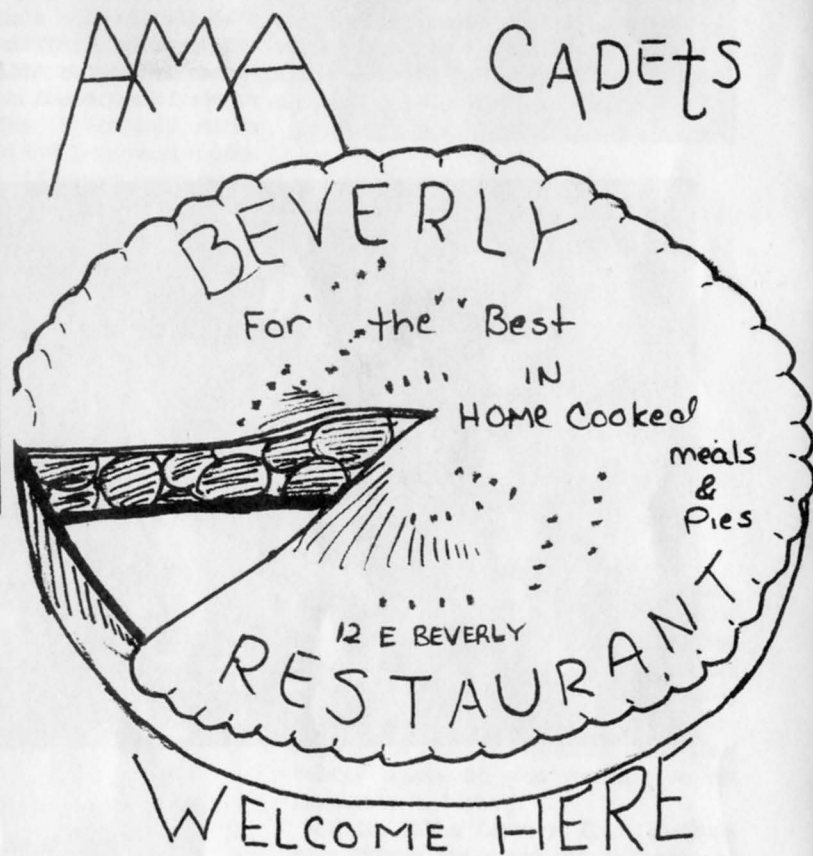 AMA CADEtS
BEVERLY
For the Best
IN
HOME Cooked
meals
&
Pies
12 E BEVERLY
RESTAURANT
WELCOME HERE